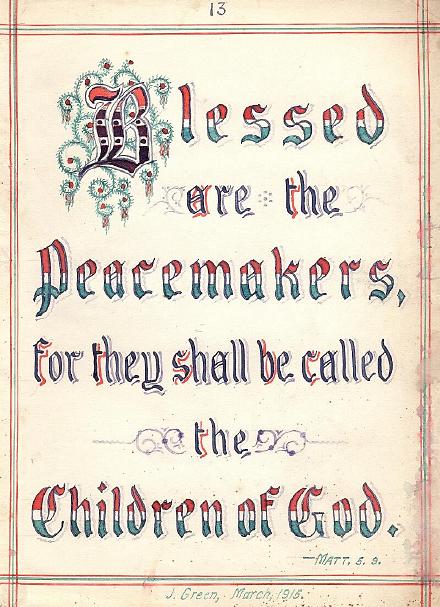 13
Blessed
are the
Peacemakers,
for they shall be called
the
Children of God.
—MATT. 5. 9.
J. Green, March, 1915.